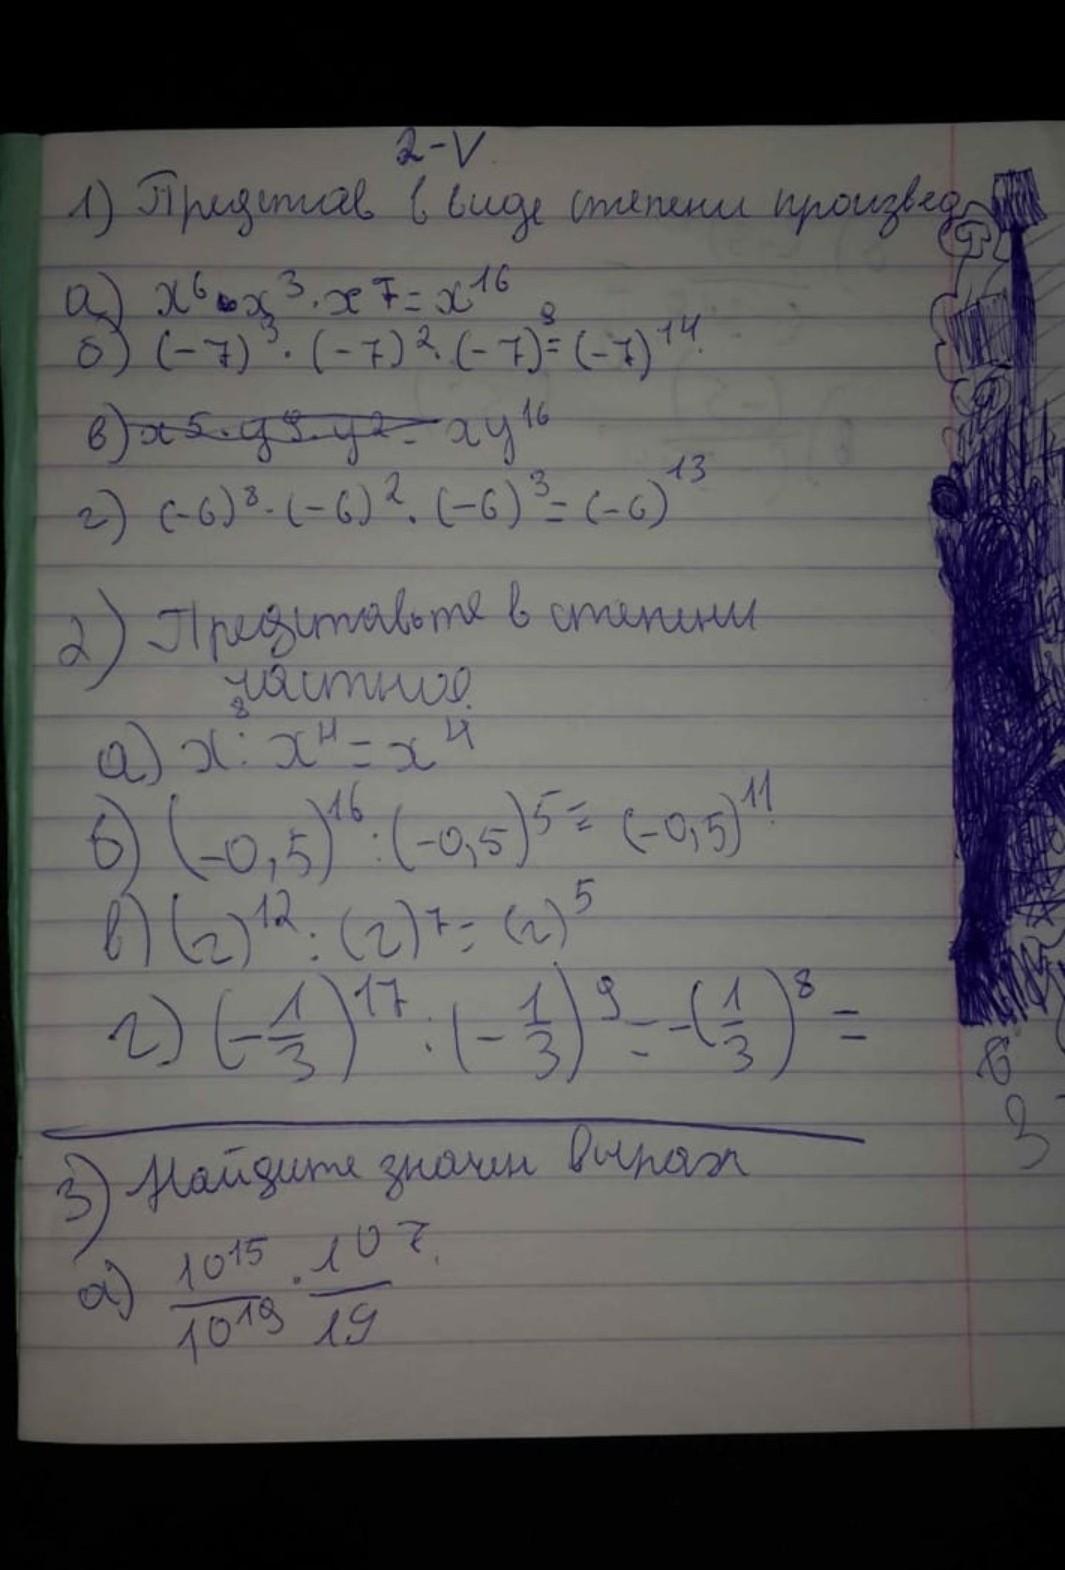 2-V
1) Представ в виде степени произвед
а) x⁶ · x³ · x⁷ = x¹⁶
б) (-7)³ · (-7)² · (-7)⁹ = (-7)¹⁴
в) x⁵ · y⁹ · y² = xy¹⁶
г) (-6)⁸ · (-6)² · (-6)³ = (-6)¹³
2) Представьте в степени
частное
а) x⁸ : x⁴ = x⁴
б) (-0,5)¹⁶ : (-0,5)⁵ = (-0,5)¹¹
в) (2)¹² : (2)⁷ = (2)⁵
г) (-1/3)¹⁷ : (-1/3)⁹ = -(1/3)⁸ =
3) Найдите значен выраж
а) 10¹⁵/10¹⁹ · 10⁷/19